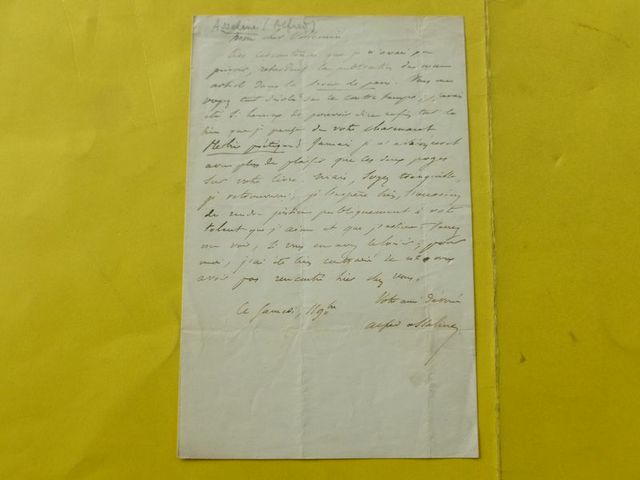 Asseline (Alfred)
mon cher
Des circonstances que je n'avais pu
prévoir, retardent la publication de mon
article dans la revue de paris. Vous me
voyez tout désolé de ce contre temps; j'avais
été si heureux de pouvoir dire enfin tout le
bien que je pense de votre charmant
Jamais je n'
avec plus de plaisir que ces deux pages
sur votre livre. Mais, soyez tranquille,
je retrouverai, je l'espère bien, l'occasion
de rendre justice publiquement à votre
talent que j'aime et que j'
me voir, si vous en avez le loisir; pour
moi, j'ai été très contrarié de ne vous
avoir pas rencontré hier chez vous.
Votre ami dévoué
Ce Samedi,
Alfred Asseline